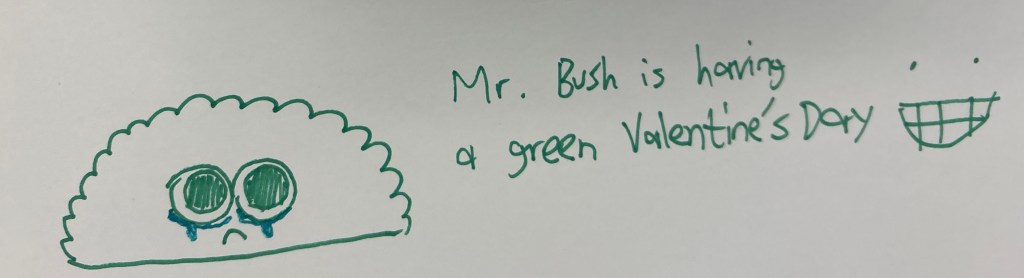 Mr. Bush is having
a green Valentine's Day